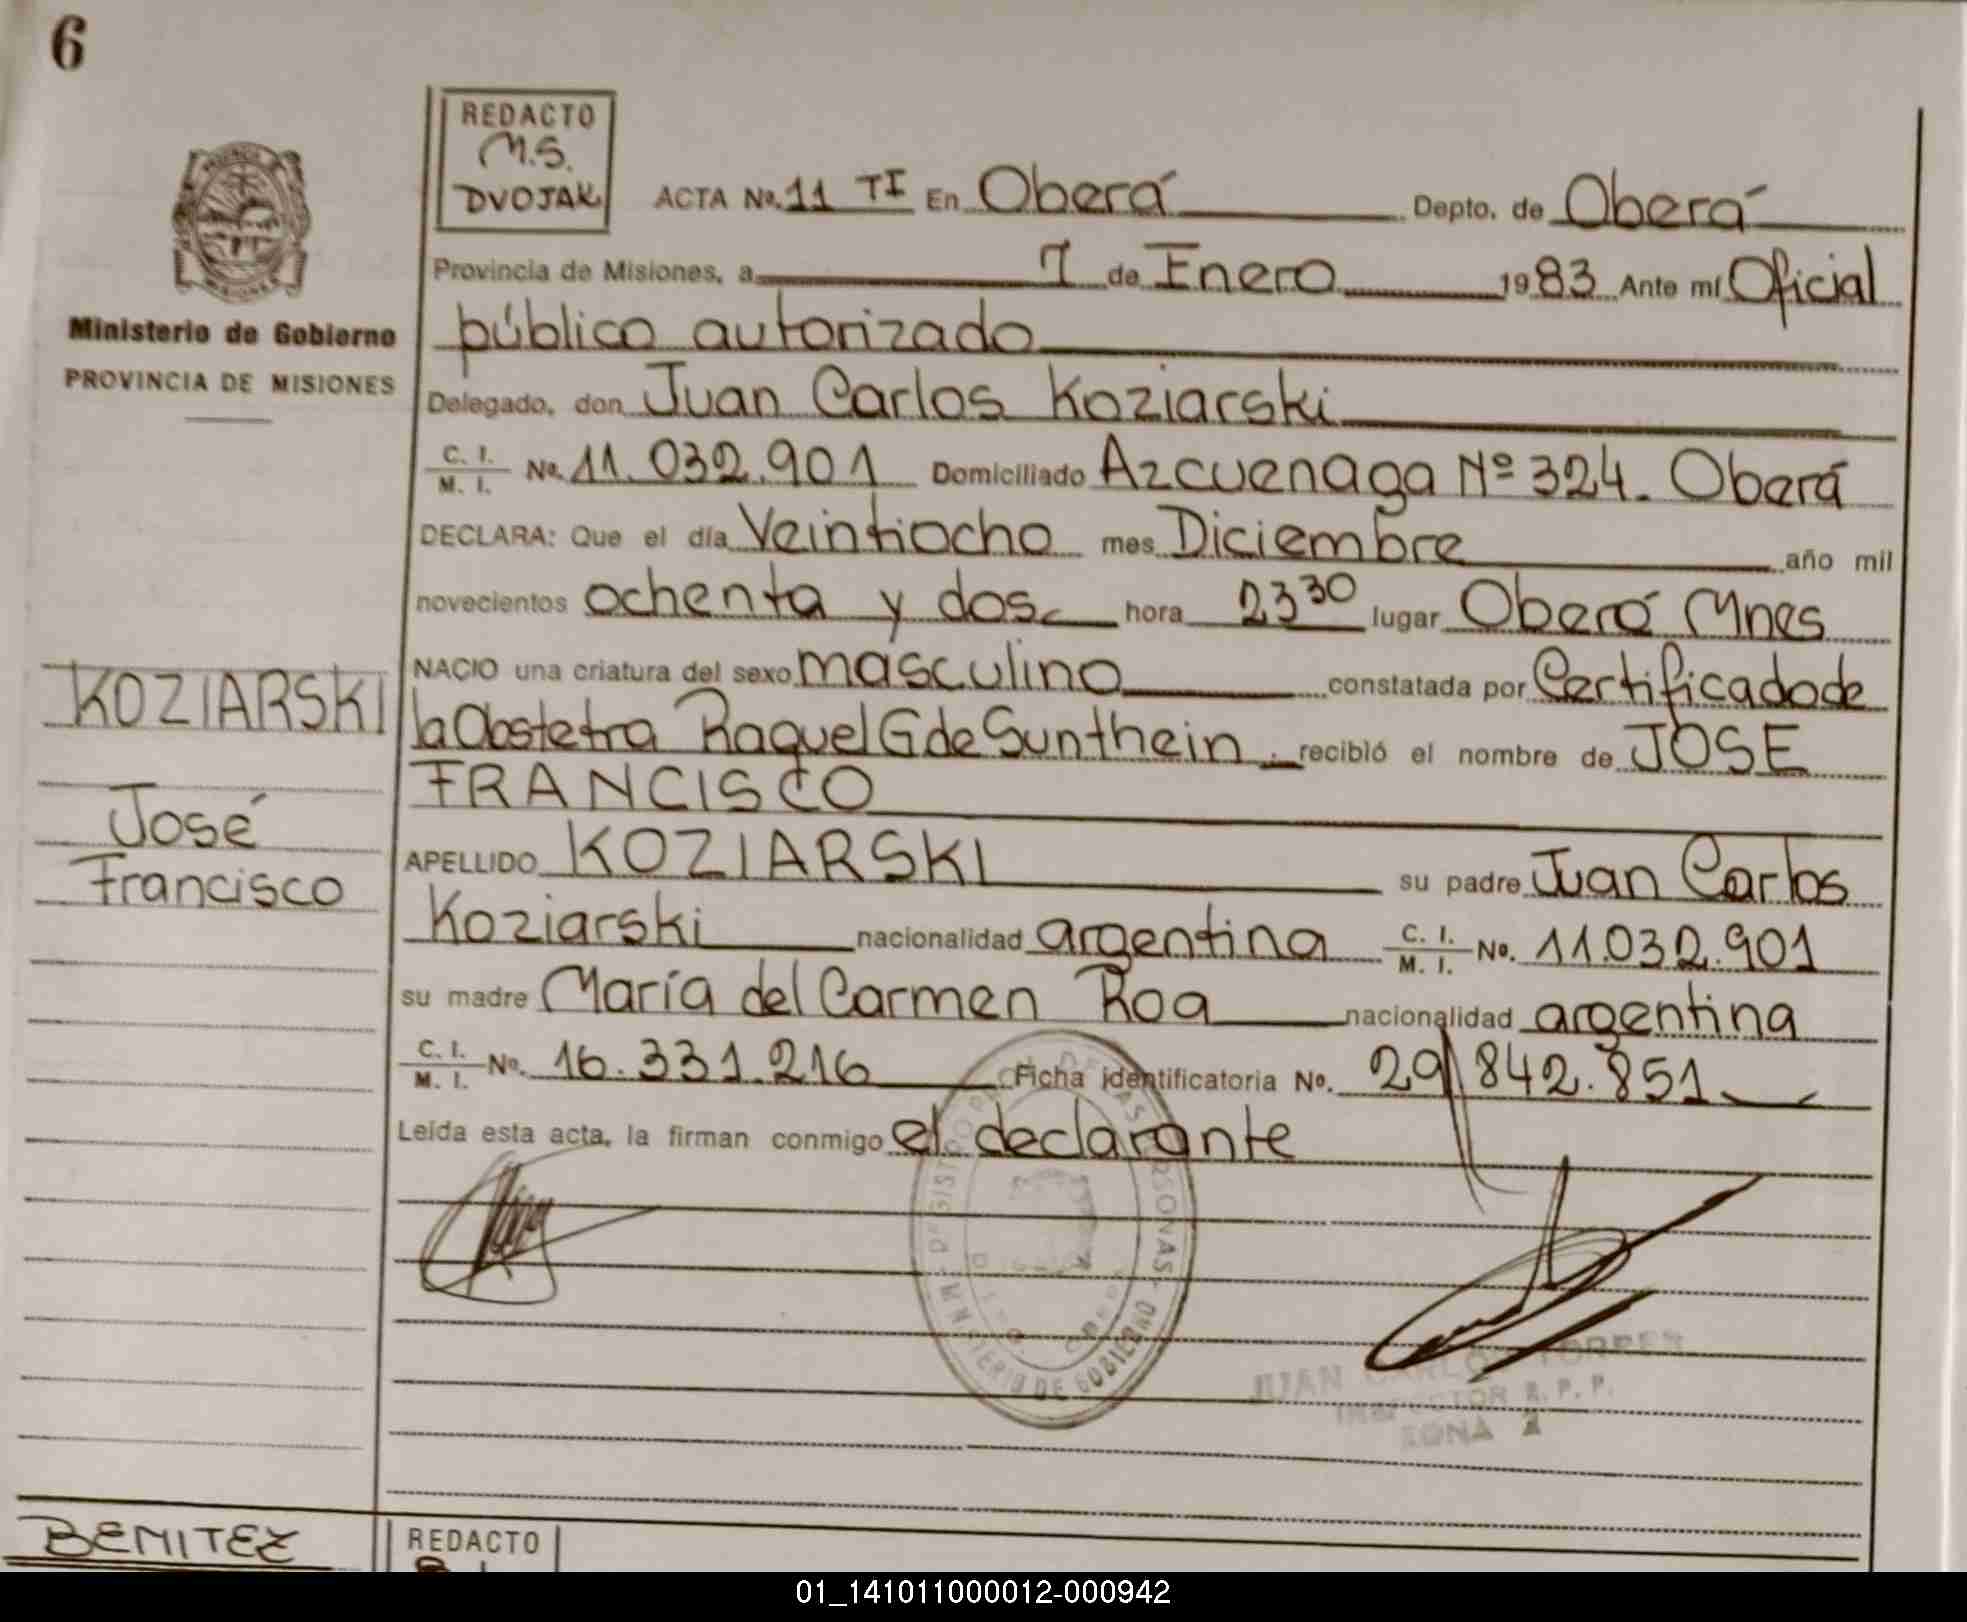 6
REDACTO
M.S.
DVOJAK
ACTA No. 11 TI En Oberá Depto. de Oberá
Provincia de Misiones, a 7 de Enero 1983 Ante mí Oficial
público autorizado
Ministerio de Gobierno
PROVINCIA DE MISIONES
Delegado, don Juan Carlos Koziarski
C. I.
M. I. No. 11.032.901 Domiciliado Azcuenaga Nº 324. Oberá
DECLARA: Que el día Veintiocho mes Diciembre año mil
novecientos ochenta y dos hora 23 30 lugar Oberá Mnes
NACIO una criatura del sexo masculino constatada por Certificado de
KOZIARSKI
la Obstetra Raquel G de Sunthein. recibió el nombre de JOSE
FRANCISCO
José
Francisco
APELLIDO KOZIARSKI su padre Juan Carlos
Koziarski nacionalidad argentina C. I. M. I. No. 11.032.901
su madre María del Carmen Roa nacionalidad argentina
C. I.
M. I. No. 16.331.216 Ficha identificatoria No. 29 842.851
Leída esta acta, la firman conmigo el declarante
MINISTERIO DE GOBIERNO
JUAN CARLOS TORRES
INSPECTOR R. P. P.
ZONA 2
BENITEZ
REDACTO
01_141011000012-000942